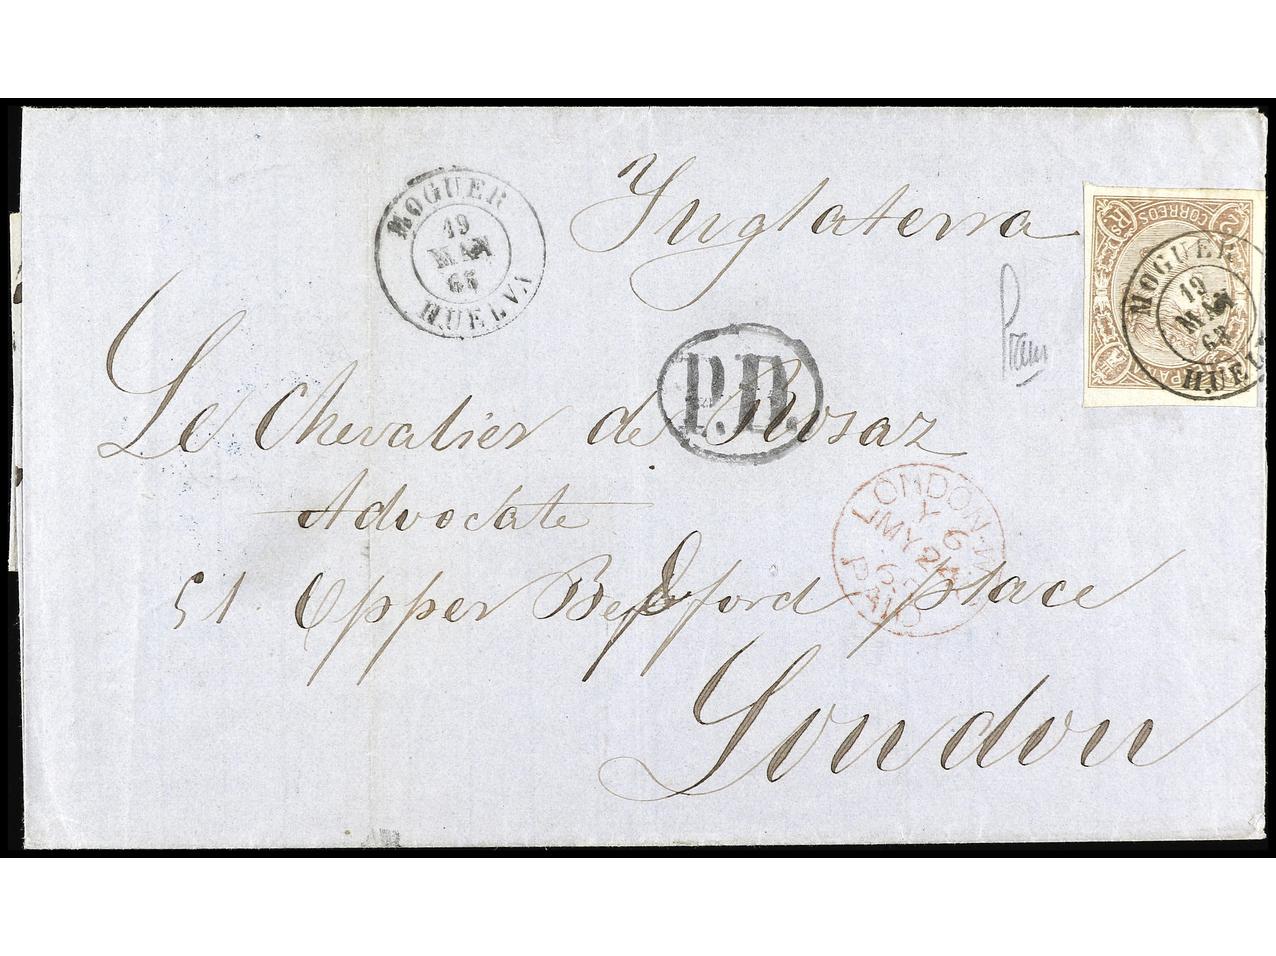 Inglaterra
MOGUER
19
MAY
65
HUELVA
2 Rs CORREOS
MOGUER
19
MAY
65
HUEL
P.D.
Le Chevalier de Rosaz
Advocate
51 Upper Bedford place
London
LONDON·W
Y 6
MY 24
65
PAID